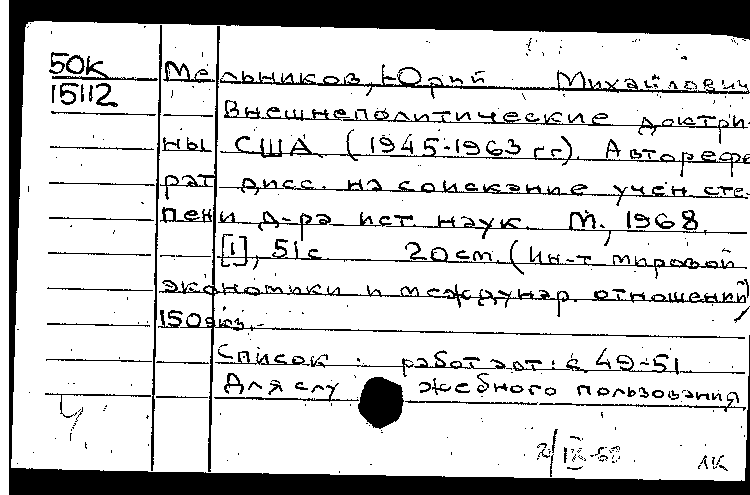 50К
15112
Мельников, Юрий Михайлович
Внешнеполитические доктри-
ны США (1945-1963 гг). Авторефе
рат дисс. на соискание учен. сте-
пени д-ра ист. наук. М., 1968.
[1], 51 с 20 см. (Ин-т мировой
экономики и междунар. отношений)
150 экз.
Список работ авт: с. 49-51
Для служебного пользования
IX-68
ЛК